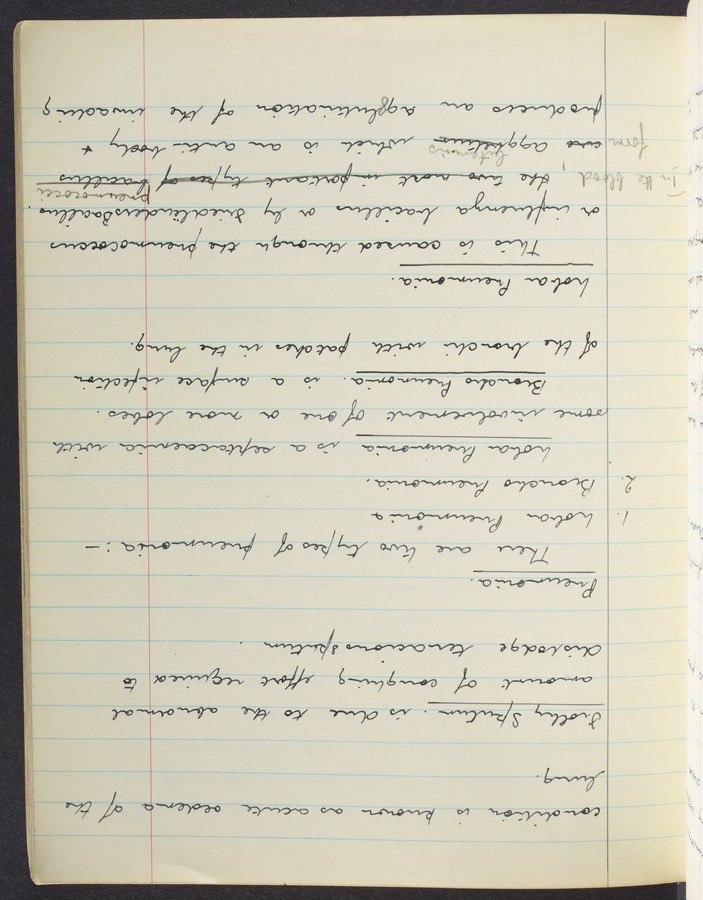 condition is known as acute oedema of the
lung.
Frothy Sputum. is due to the abnormal
amount of coughing effort required to
dislodge tenacious sputum.
Pneumonia.
There are two types of pneumonia :-
1. Lobar Pneumonia
2. Broncho Pneumonia.
Lobar Pneumonia is a septacaemia with
some involvement of one or more lobes.
Broncho Pneumonia. is a surface infection
of the bronchi with patches in the lung.
Lobar Pneumonia.
This is caused through the pneumococcus
or influenza bacillus or by Friedländersbacillus
pneumococci
In the blood, the two most important types of bacillus
form are agglutinins which is an anti-body &
produces an agglutination of the invading